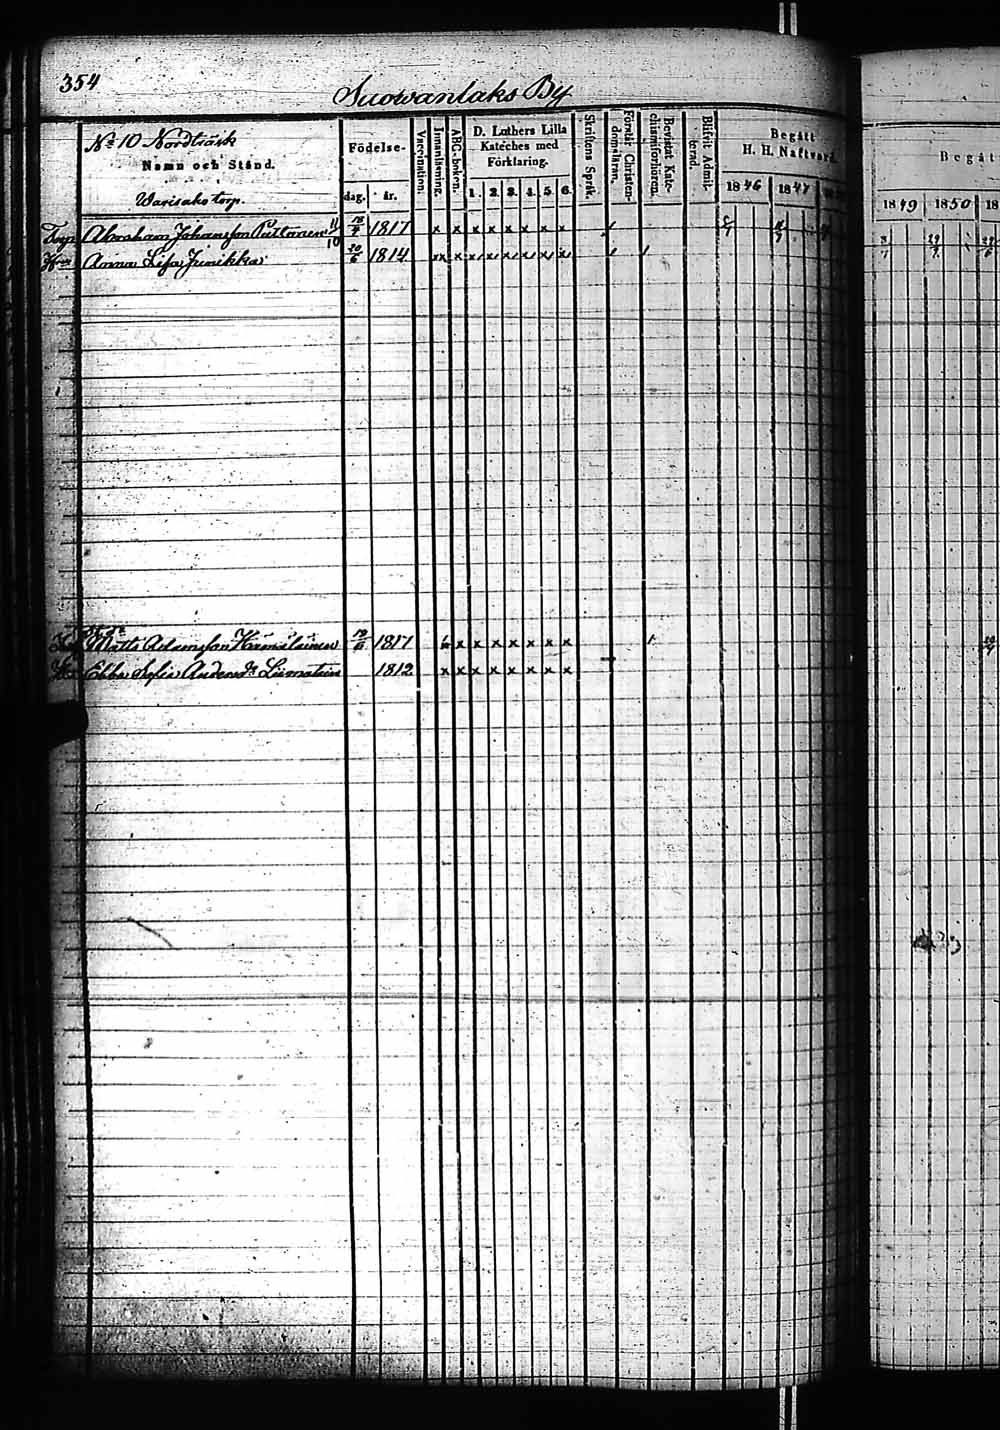 354
Suowanlaks By
No 10 Nordträsk
Namn och Stånd.
Warisaho torp.
Födelse-
dag. år.
Vaccination.
Innanläsning.
ABC-boken.
D. Luthers Lilla
Kateches med
Förklaring.
1. 2. 3. 4. 5. 6.
Skriftens Språk.
Förstår Christen-
domsläran.
Bevistat Kate-
chismiförhören.
Blifvit Admit-
terad.
Begått
H. H. Nattvard.
1846 1847
Begått
1849 1850 18
Torp Abraham Johansson Puttonen 1817 x x x x x x x x
Hu Anna Lisa Junikka 20/6 1814
Matts Adamsson Hämäläinen 1817 x x x x x x x
Ebba Sofia Andersdr Liimatain 1812 x x x x x x x x